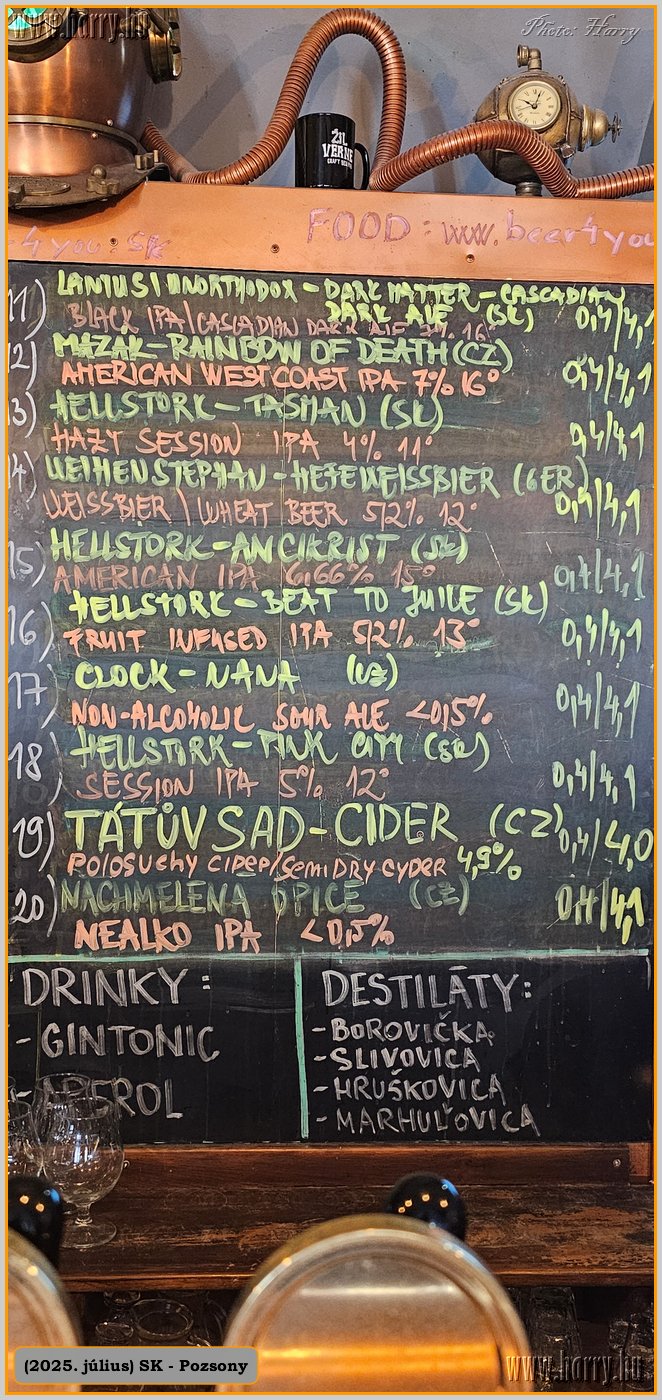 www.harry.hu
Photo: Harry
ŽiL
VERNE
CRAFT BEER PUB
FOOD: www.beer4you
4you.sk
11) LANIUS | UNORTHODOX - DARK MATTER - CASCADIAN
DARK ALE (SK) 0,4/4,1
BLACK IPA/CASCADIAN DARK ALE 7% 16°
12) MAZÁK-RAINBOW OF DEATH (CZ) 0,4/4,1
AMERICAN WEST COAST IPA 7% 16°
13) HELLSTORK - TASMAN (SK) 0,4/4,1
HAZY SESSION IPA 4% 11°
14) WEIHENSTEPHAN - HEFEWEISSBIER (GER) 0,4/4,1
WEISSBIER / WHEAT BEER 5,2% 12°
15) HELLSTORK-ANCIKRIST (SK) 0,4/4,1
AMERICAN IPA 6,66% 15°
16) HELLSTORK - BEAT TO JUICE (SK) 0,4/4,1
FRUIT INFUSED IPA 5,2% 13°
17) CLOCK - NANA (CZ) 0,4/4,1
NON-ALCOHOLIC SOUR ALE <0,5%
18) HELLSTORK - PINK CITY (SK) 0,4/4,1
SESSION IPA 5% 12°
19) TÁTŮV SAD - CIDER (CZ) 0,4/4,0
POLOSUCHÝ CIDER/SEMI DRY CYDER 4,5%
20) NACHMELENÁ OPICE (CZ) 0,4/4,1
NEALKO IPA <0,5%
DRINKY:
- GINTONIC
- APEROL
DESTILÁTY:
- BOROVIČKA
- SLIVOVICA
- HRUŠKOVICA
- MARHUĽOVICA
(2025. július) SK - Pozsony
www.harry.hu